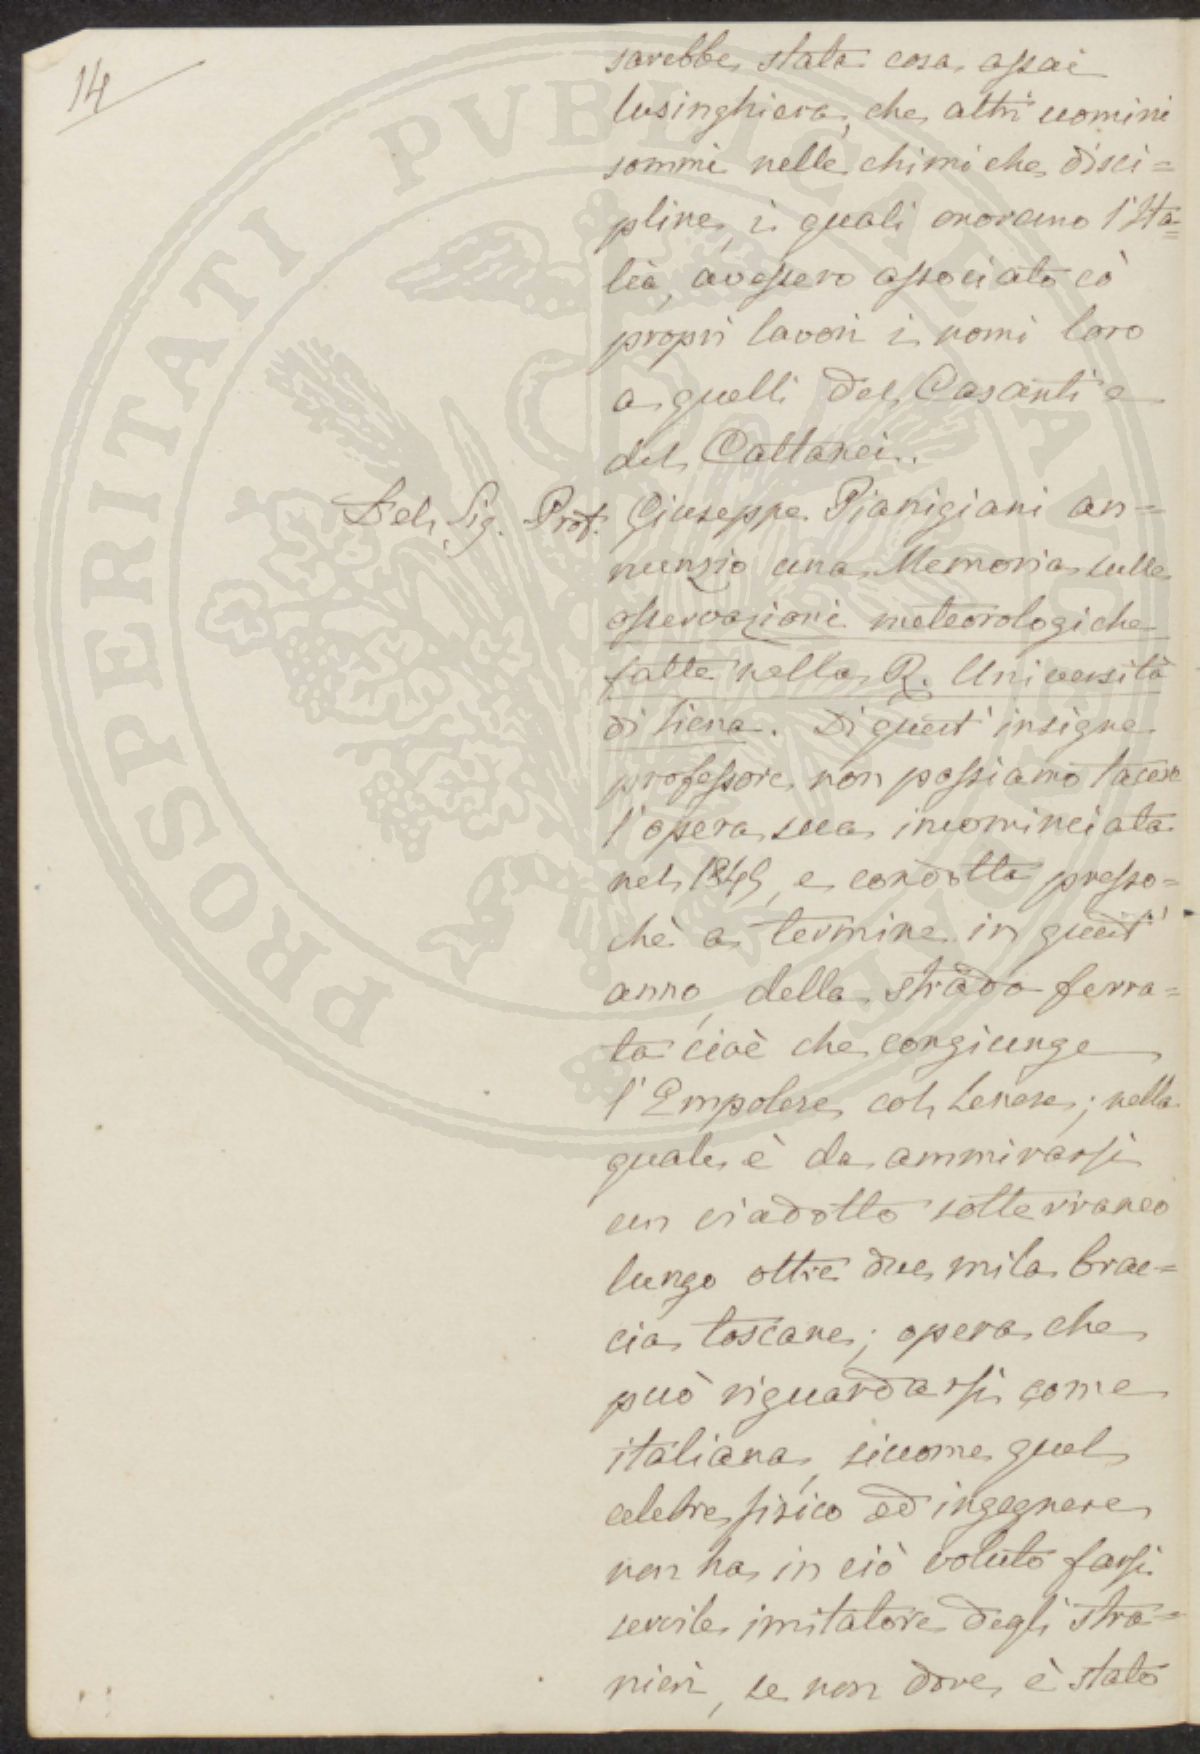 14
sarebbe stata cosa assai
lusinghiera, che altri uomini
sommi nelle chimiche disci=
pline, i quali onorano l'Ita=
lia, avessero associato cò
propri lavori i nomi loro
a quelli del Casanti e
del Cattanei.
Del Sig. Prof. Giuseppe Pianigiani an=
nunzio una Memoria sulle
osservazioni meteorologiche
fatte nella R. Università
di Siena. Di quest' insigne
professore non possiamo tacere
l'opera sua incominciata
nel 1845, e condotta presso=
chè a termine in quest'
anno, della strada ferra=
ta cioè che congiunge
l'Empolese col Senese; nella
quale è da ammirarsi
un viadotto sotterraneo
lungo oltre due mila brac=
cia toscane; opera che
può riguardarsi come
italiana, siccome quel
celebre fisico ed ingegnere
non ha in ciò voluto farsi
servile imitatore degli stra=
nieri, se non dove è stato
PROSPERITATI PVBLICAE AVGENDAE